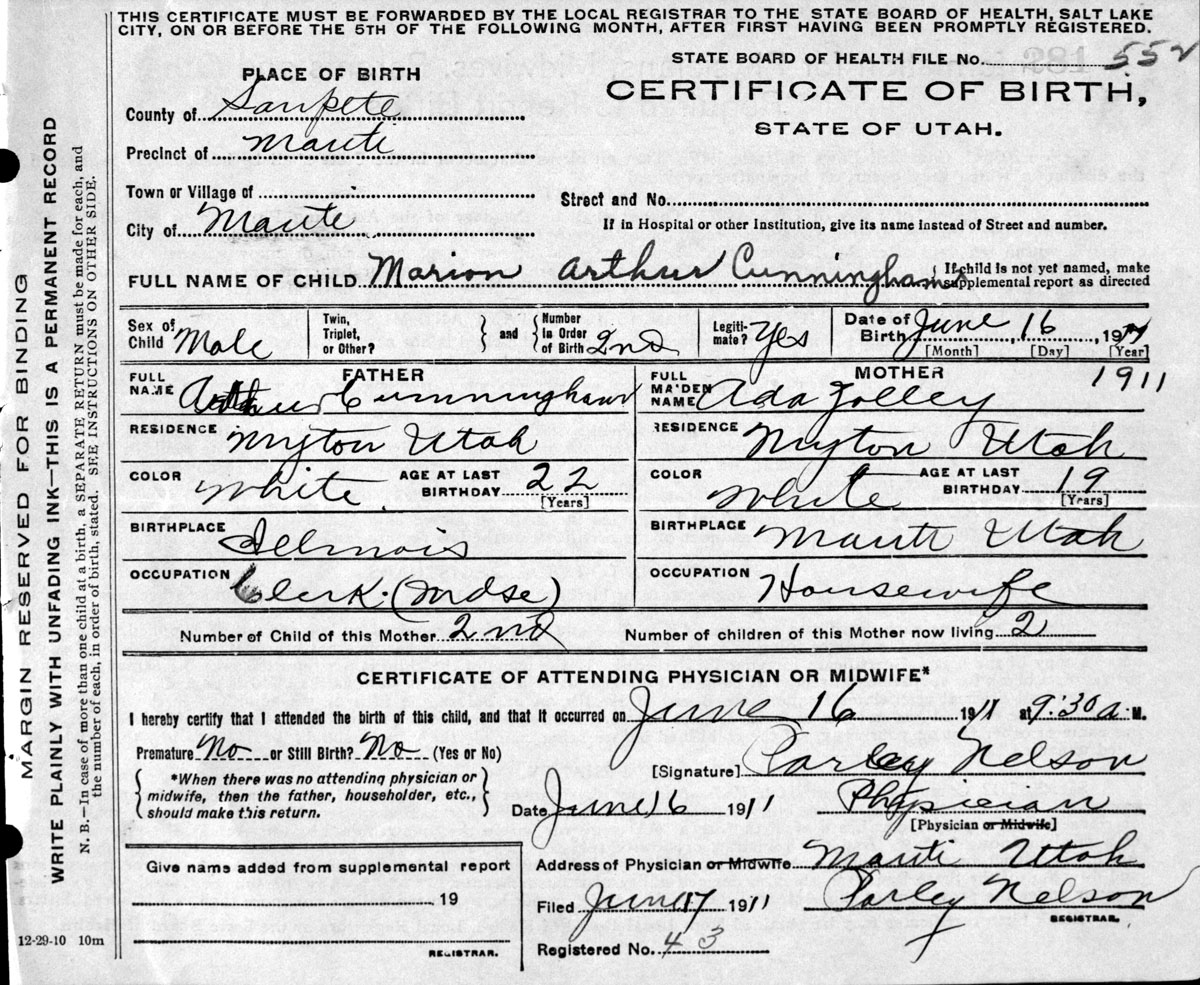 THIS CERTIFICATE MUST BE FORWARDED BY THE LOCAL REGISTRAR TO THE STATE BOARD OF HEALTH, SALT LAKE
CITY, ON OR BEFORE THE 5TH OF THE FOLLOWING MONTH, AFTER FIRST HAVING BEEN PROMPTLY REGISTERED.
STATE BOARD OF HEALTH FILE No. 552
PLACE OF BIRTH
CERTIFICATE OF BIRTH,
STATE OF UTAH.
County of Sanpete
Precinct of Manti
Town or Village of
Street and No.
City of Manti
If in Hospital or other Institution, give its name instead of Street and number.
FULL NAME OF CHILD Marion Arthur Cunningham
If child is not yet named, make
supplemental report as directed
Sex of Child Male
Twin, Triplet, or Other?
and
Number in Order of Birth 2nd
Legiti-mate? Yes
Date of Birth June 16, 19
[Month] [Day] [Year]
1911
FATHER
FULL NAME Arthur Cunningham
RESIDENCE Myton Utah
COLOR White AGE AT LAST BIRTHDAY 22
[Years]
BIRTHPLACE Illinois
OCCUPATION Clerk. (Mdse)
MOTHER
FULL MAIDEN NAME Ada Jolley
RESIDENCE Myton Utah
COLOR White AGE AT LAST BIRTHDAY 19
[Years]
BIRTHPLACE Manti Utah
OCCUPATION Housewife
Number of Child of this Mother 2nd Number of children of this Mother now living 2
CERTIFICATE OF ATTENDING PHYSICIAN OR MIDWIFE*
I hereby certify that I attended the birth of this child, and that it occurred on June 16 1911 at 9:30 a. M.
Premature No or Still Birth? No (Yes or No)
*When there was no attending physician or
midwife, then the father, householder, etc.,
should make this return.
[Signature] Parley Nelson
Date June 16 1911 Physician
[Physician or Midwife]
Address of Physician or Midwife Manti Utah
Give name added from supplemental report
19
REGISTRAR.
Filed June 17 1911 Parley Nelson
REGISTRAR.
Registered No. 43
12-29-10 10m
MARGIN RESERVED FOR BINDING
WRITE PLAINLY WITH UNFADING INK—THIS IS A PERMANENT RECORD
N. B.—In case of more than one child at a birth, a SEPARATE RETURN must be made for each, and
the number of each, in order of birth, stated. SEE INSTRUCTIONS ON OTHER SIDE.